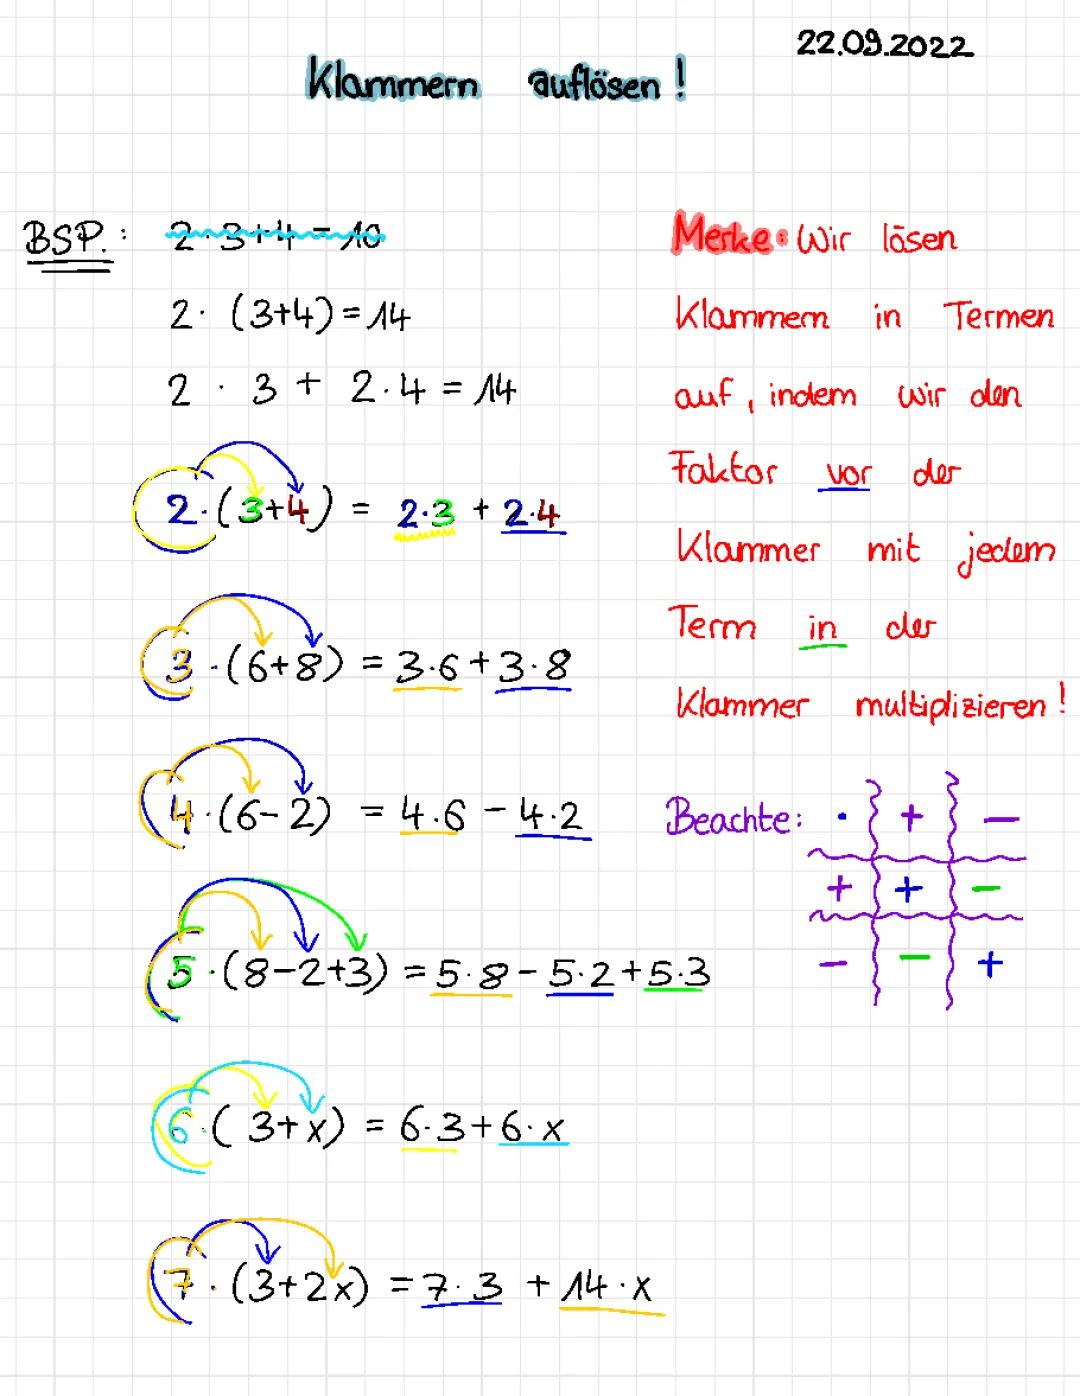 22.09.2022
Klammern auflösen!
BSP.: 2·3+4=10
2·(3+4)=14
2·3+2·4=14
2·(3+4) = 2·3 + 2·4
3·(6+8) = 3·6+3·8
4·(6-2) = 4·6 - 4·2
5·(8-2+3) = 5·8 - 5·2+5·3
6·(3+x) = 6·3+6·x
7·(3+2x) = 7·3 + 14·x
Merke: Wir lösen
Klammern in Termen
auf, indem wir den
Faktor vor der
Klammer mit jedem
Term in der
Klammer multiplizieren!
Beachte: · + -
+ + -
- - +